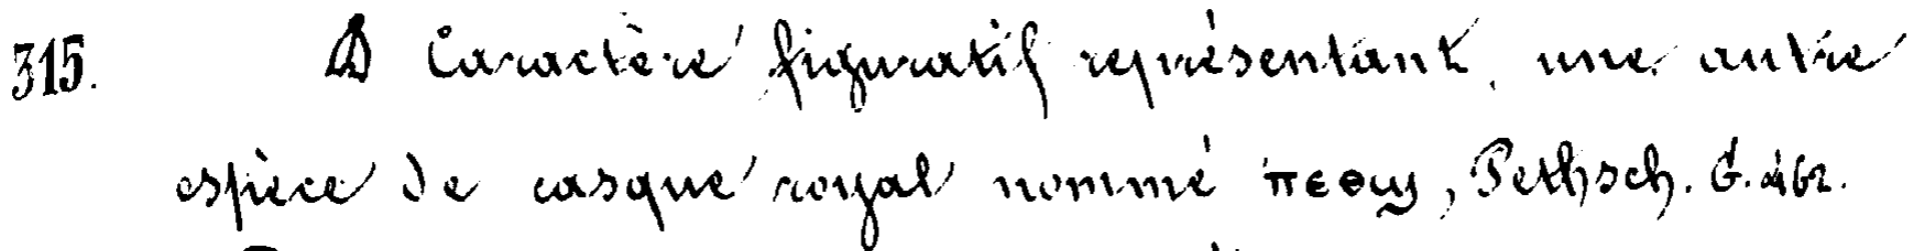 315. Caractère figuratif représentant, une autre
espèce de casque royal nommé ⲡⲉⲑϣ, Pethsch. G. 462.